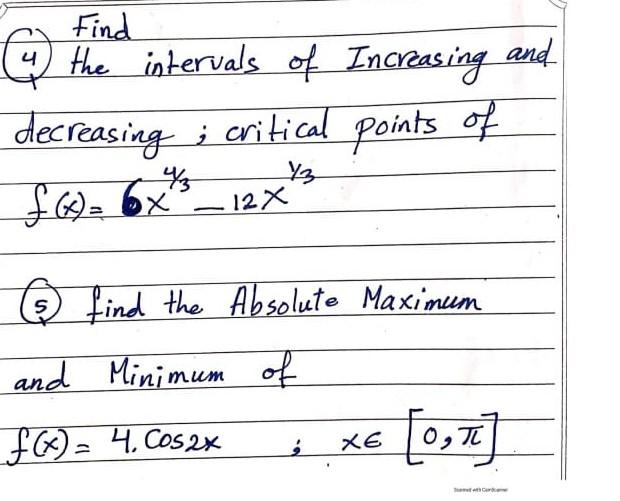 Find
④ the intervals of Increasing and
decreasing ; critical points of
f(x) = 6x^4/3 — 12x^1/3
⑤ find the Absolute Maximum
and Minimum of
f(x) = 4. Cos2x ; x∈ [0, π]
Scanned with CamScanner